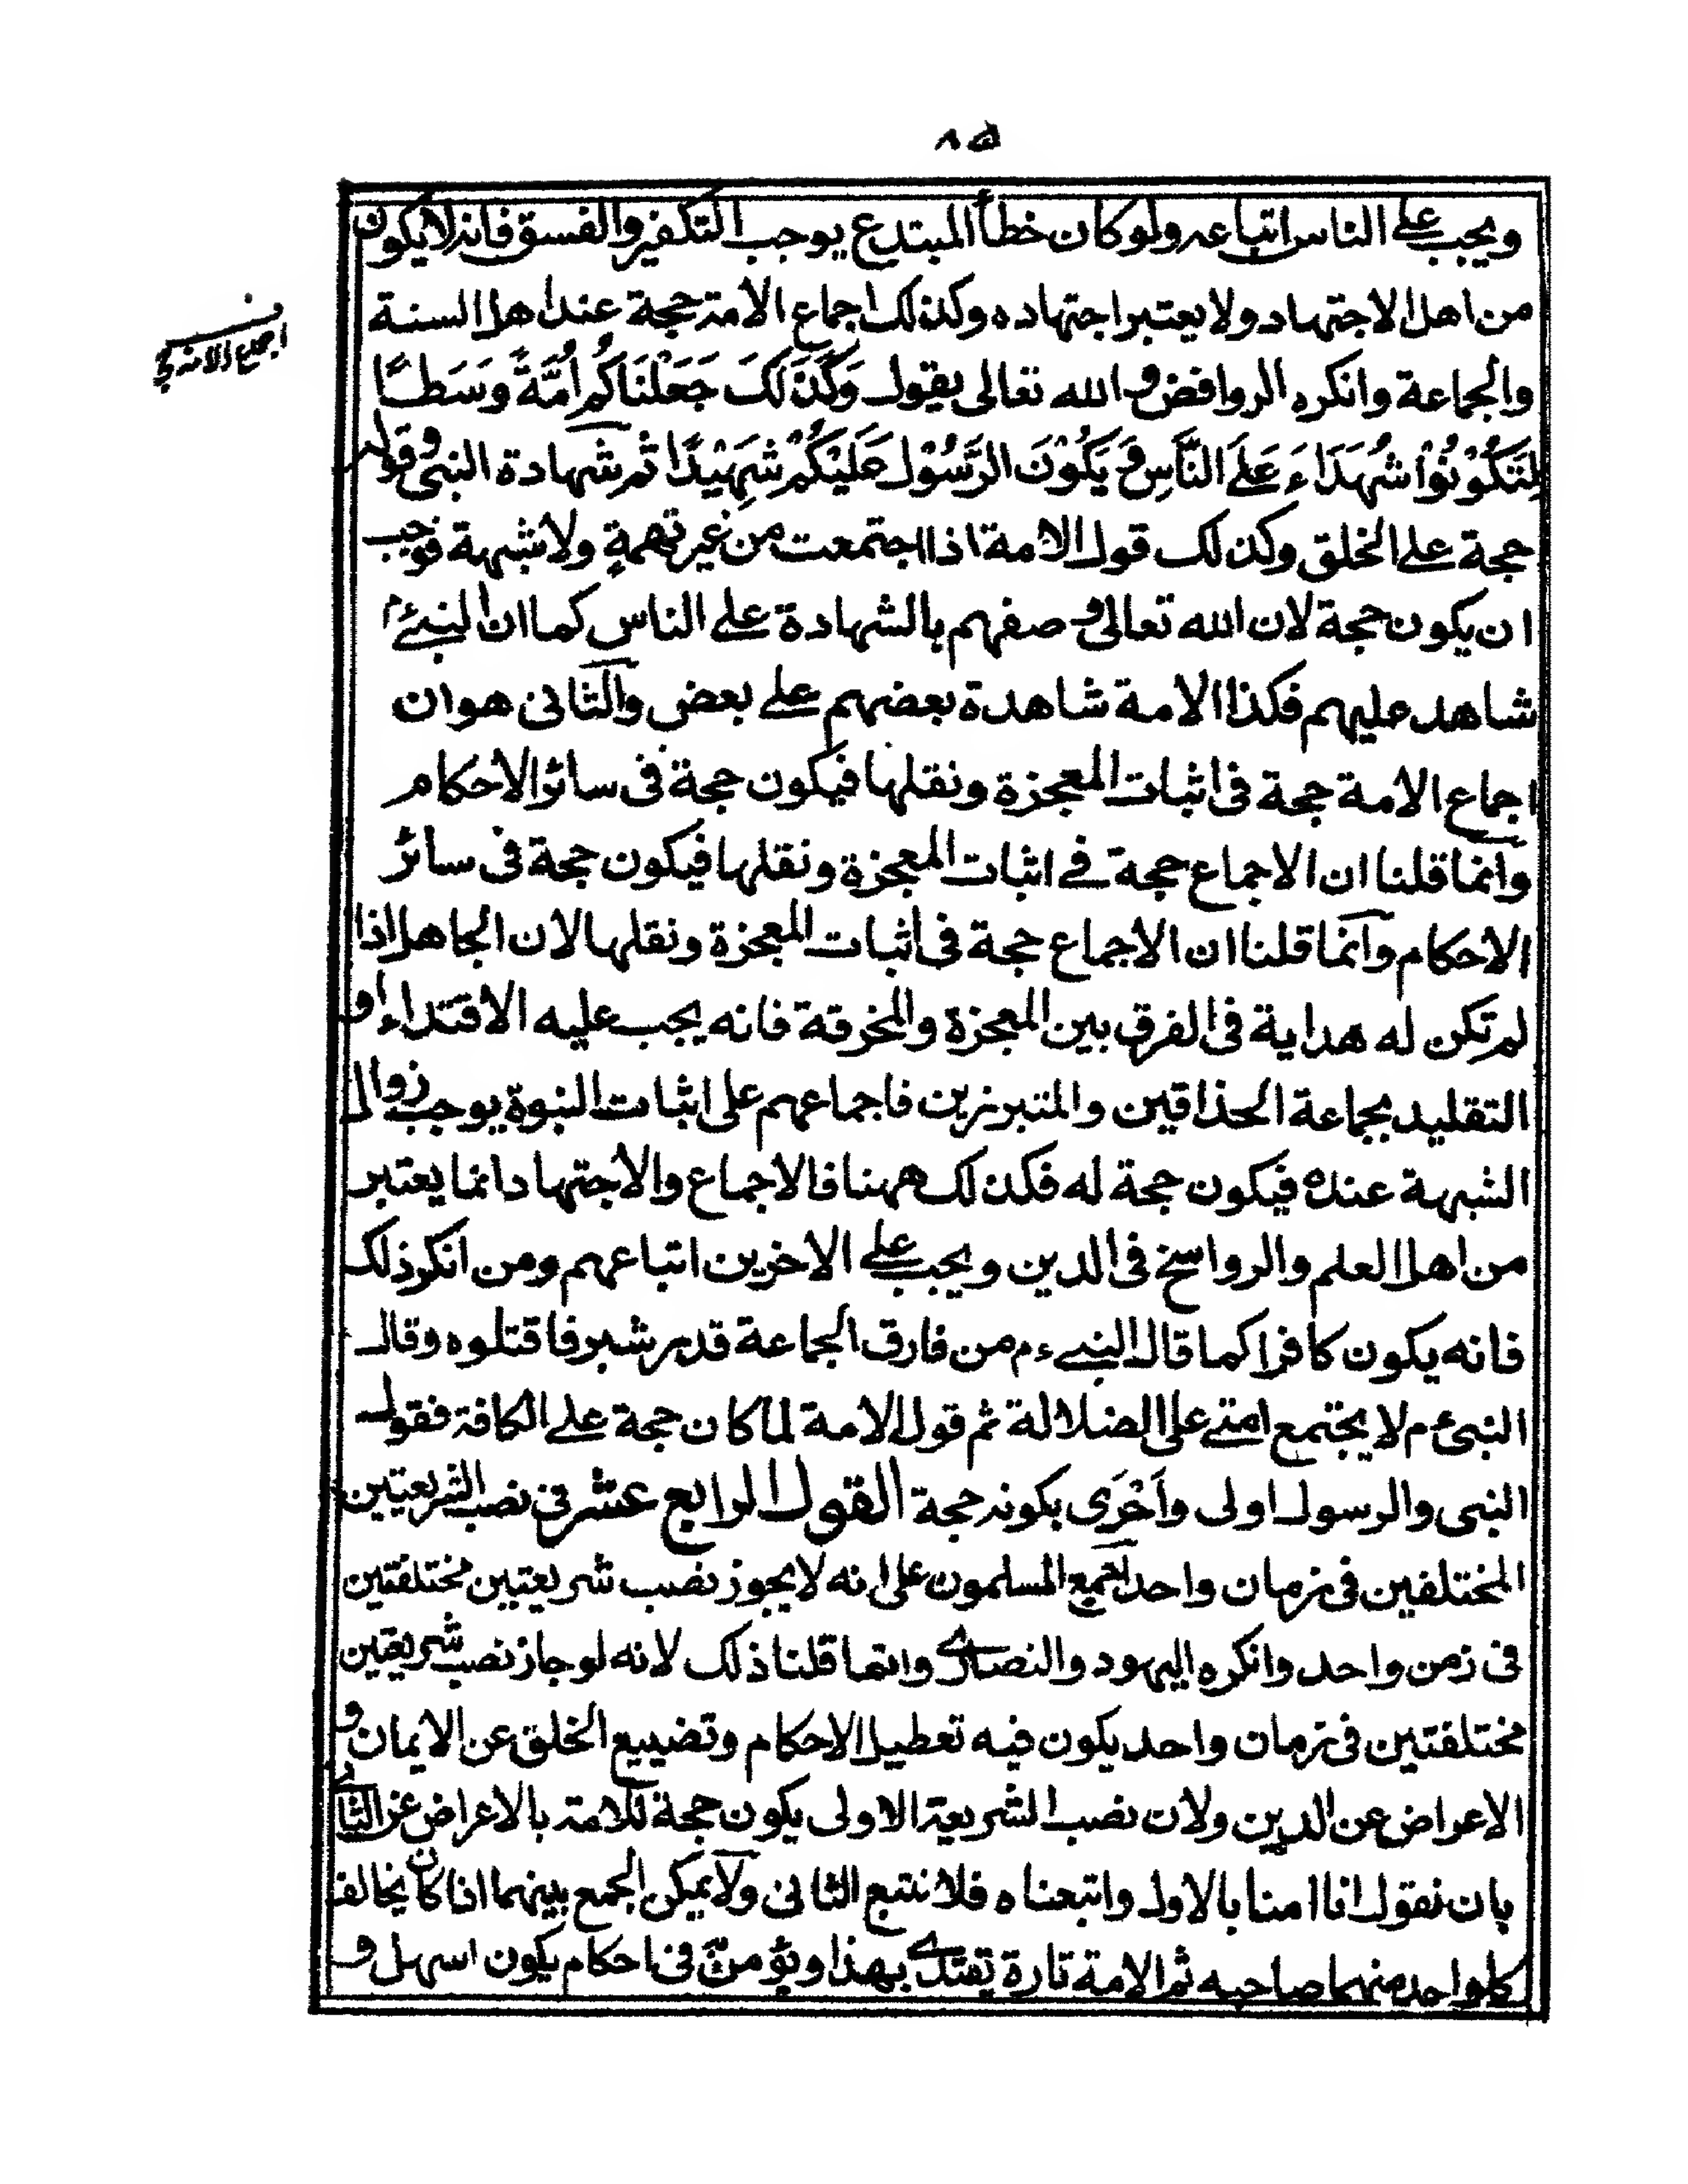 ٨٥
ويجب على الناس اتباعه ولو كان خطأ المبتدع يوجب التكفير والفسق فانه لا يكون
من اهل الاجتهاد ولا يعتبر اجتهاده وكذلك اجماع الامة حجة عند اهل السنة
والجماعة وانكره الروافض و الله تعالى يقول وَكَذَلِكَ جَعَلْنَاكُمْ اُمَّةً وَسَطًا
لِتَكُوْنُوْا شُهَدَاءَ عَلَى النَّاسِ وَ يَكُوْنَ الرَّسُوْلُ عَلَيْكُمْ شَهِيْدًا ثم شهادة النبى وقوله
حجة على الخلق وكذلك قول الامة اذا اجتمعت من غير تهمةٍ ولا شبهة فوجب
ان يكون حجة لان الله تعالى و صفهم بالشهادة على الناس كما ان النبىء م
شاهد عليهم فكذا الامة شاهدة بعضهم على بعض والثانى هو ان
اجماع الامة حجة فى اثبات المعجزة ونقلها فيكون حجة فى سائر الاحكام
وانما قلنا ان الاجماع حجة فى اثبات المعجزة ونقلها فيكون حجة فى سائر
الاحكام وانما قلنا ان الاجماع حجة فى اثبات المعجزة ونقلها لان الجاهل اذا
لم تكن له هداية فى الفرق بين المعجزة والمخرقة فانه يجب عليه الاقتداء او
التقليد بجماعة الحذاقين والمتبرزين فاجماعهم على اثبات النبوة يوجب زوال
الشبهة عنده فيكون حجة له فكذلك ههنا فالاجماع والاجتهاد انما يعتبر
من اهل العلم والرواسخ فى الدين ويجب على الاخرين اتباعهم ومن انكر ذلك
فانه يكون كافرا كما قال النبىء م من فارق الجماعة قدر شبر فاقتلوه وقال
النبىء م لا يجتمع امتى على الضلالة ثم قول الامة لما كان حجة على الكافة فقول
النبى والرسول اولى وأَحْرَى بكونه حجة القول الرابع عشر فى نصب الشريعتين
المختلفين فى زمان واحد اجمع المسلمون على انه لا يجوز نصب شريعتين مختلفتين
فى زمن واحد وانكره اليهود والنصارى وانما قلنا ذلك لانه لو جاز نصب شريعتين
مختلفتين فى زمان واحد يكون فيه تعطيل الاحكام وتضييع الخلق عن الايمان و
الاعراض عن الدين ولان نصب الشريعة الاولى يكون حجة للامة بالاعراض عن
بان نقول انا امنا بالاول واتبعناه فلا نتبع الثانى ولا يمكن الجمع بينهما اذا كان يخالف
كل واحد منهما صاحبه ثم الامة تارة تقتدى بهذا ويؤمن فى احكام يكون اسهل و
اجماع الامة